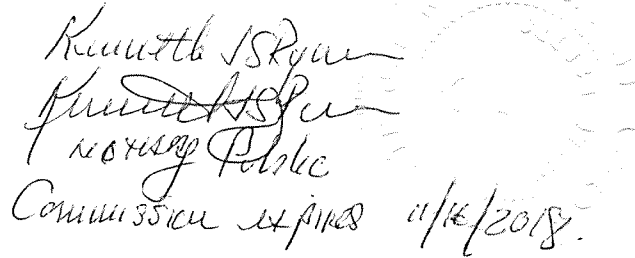 Kenneth
Kenneth
Notary Public
Commission expires 11/16/2018.